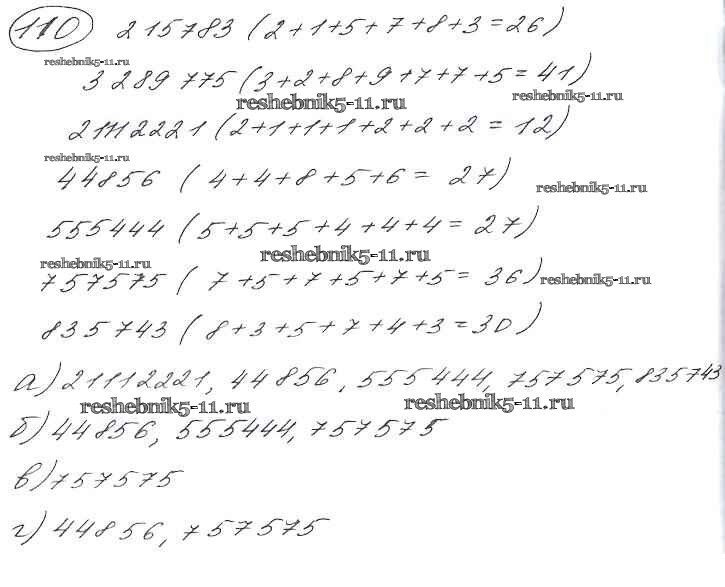 110 215783 (2+1+5+7+8+3=26)
reshebnik5-11.ru
3 289 775 (3+2+8+9+7+7+5=41)
reshebnik5-11.ru reshebnik5-11.ru
21112221 (2+1+1+1+2+2+2=12)
reshebnik5-11.ru
44856 (4+4+8+5+6= 27)
reshebnik5-11.ru
555444 (5+5+5+4+4+4=27)
reshebnik5-11.ru
reshebnik5-11.ru
757575 (7+5+7+5+7+5= 36) reshebnik5-11.ru
835743 (8+3+5+7+4+3=30)
а) 21112221, 44856, 555444, 757575, 835743
reshebnik5-11.ru reshebnik5-11.ru
б) 44856, 555444, 757575
в) 757575
г) 44856, 757575